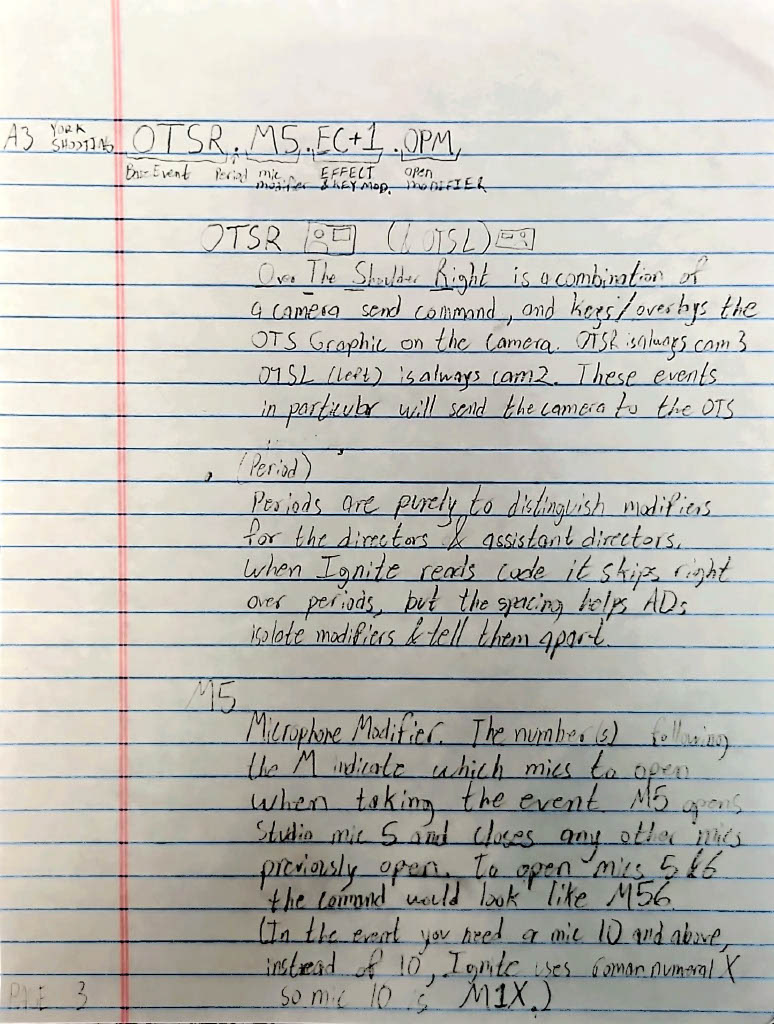 A3 YORK SHOOTING OTSR.M5.EC+1.OPM
Base Event Period mic modifier EFFECT & KEY MOD. open MODIFIER
OTSR (& OTSL)
Over The Shoulder Right is a combination of
a camera send command, and keys/overlays the
OTS Graphic on the camera. OTSR is always cam 3
OTSL (left) is always cam 2. These events
in particular will send the camera to the OTS
. (Period)
Periods are purely to distinguish modifiers
for the directors & assistant directors.
When Ignite reads code it skips right
over periods, but the spacing helps ADs
isolate modifiers & tell them apart.
M5
Microphone Modifier. The number(s) following
the M indicate which mics to open
when taking the event. M5 opens
Studio mic 5 and closes any other mics
previously open. To open mics 5 & 6
the command would look like M56
(In the event you need a mic 10 and above,
instead of 10, Ignite uses roman numeral X
so mic 10 is M1X.)
PAGE 3